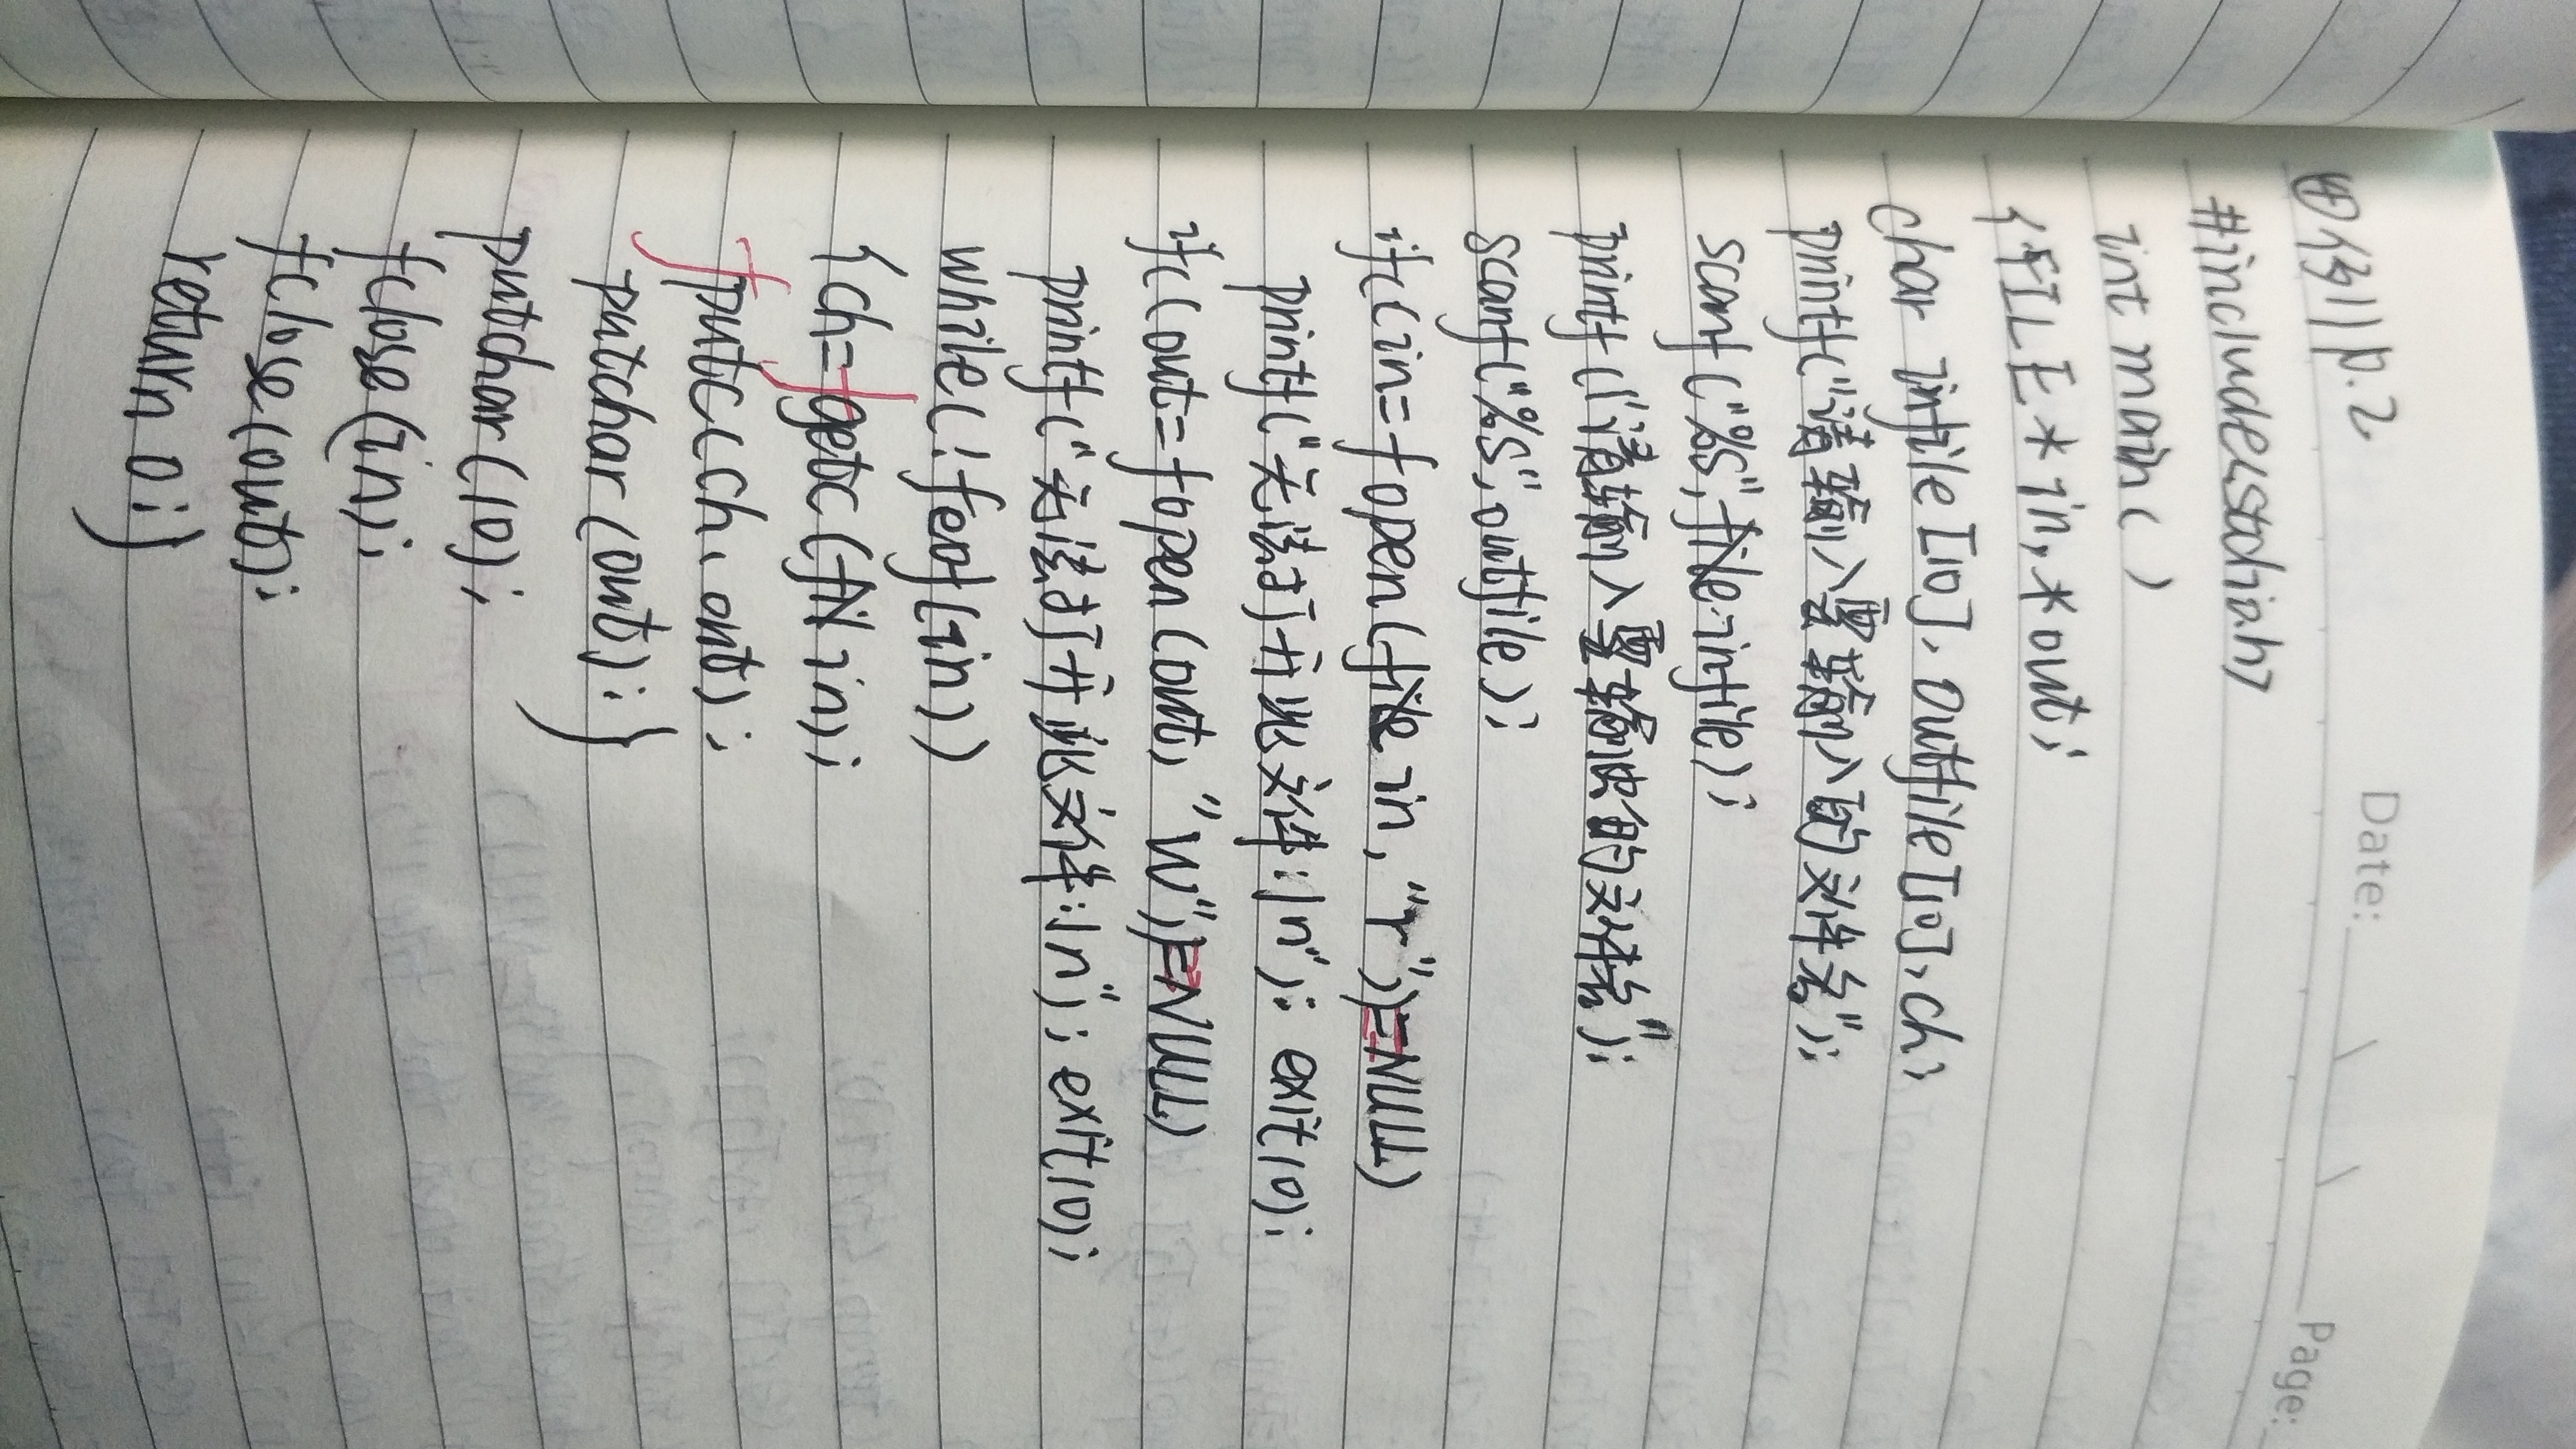 ④例10.2
Date: \ \ Page:
#include<stdio.h>
int main( )
{FILE *in,*out;
char infile[10],outfile[10],ch;
printf("请输入要输入的文件名");
scanf("%s",infile);
printf("请输入要输出的文件名");
scanf("%s",outfile);
if((in=fopen(in,"r"))==NULL)
printf("无法打开此文件:\n"); exit(0);
if((out=fopen(out,"w"))==NULL)
printf("无法打开此文件:\n"); exit(0);
while(!feof(in))
{ch=fgetc(in);
fputc(ch,out);
putchar(out);}
putchar(10);
fclose(in);
fclose(out);
return 0;}